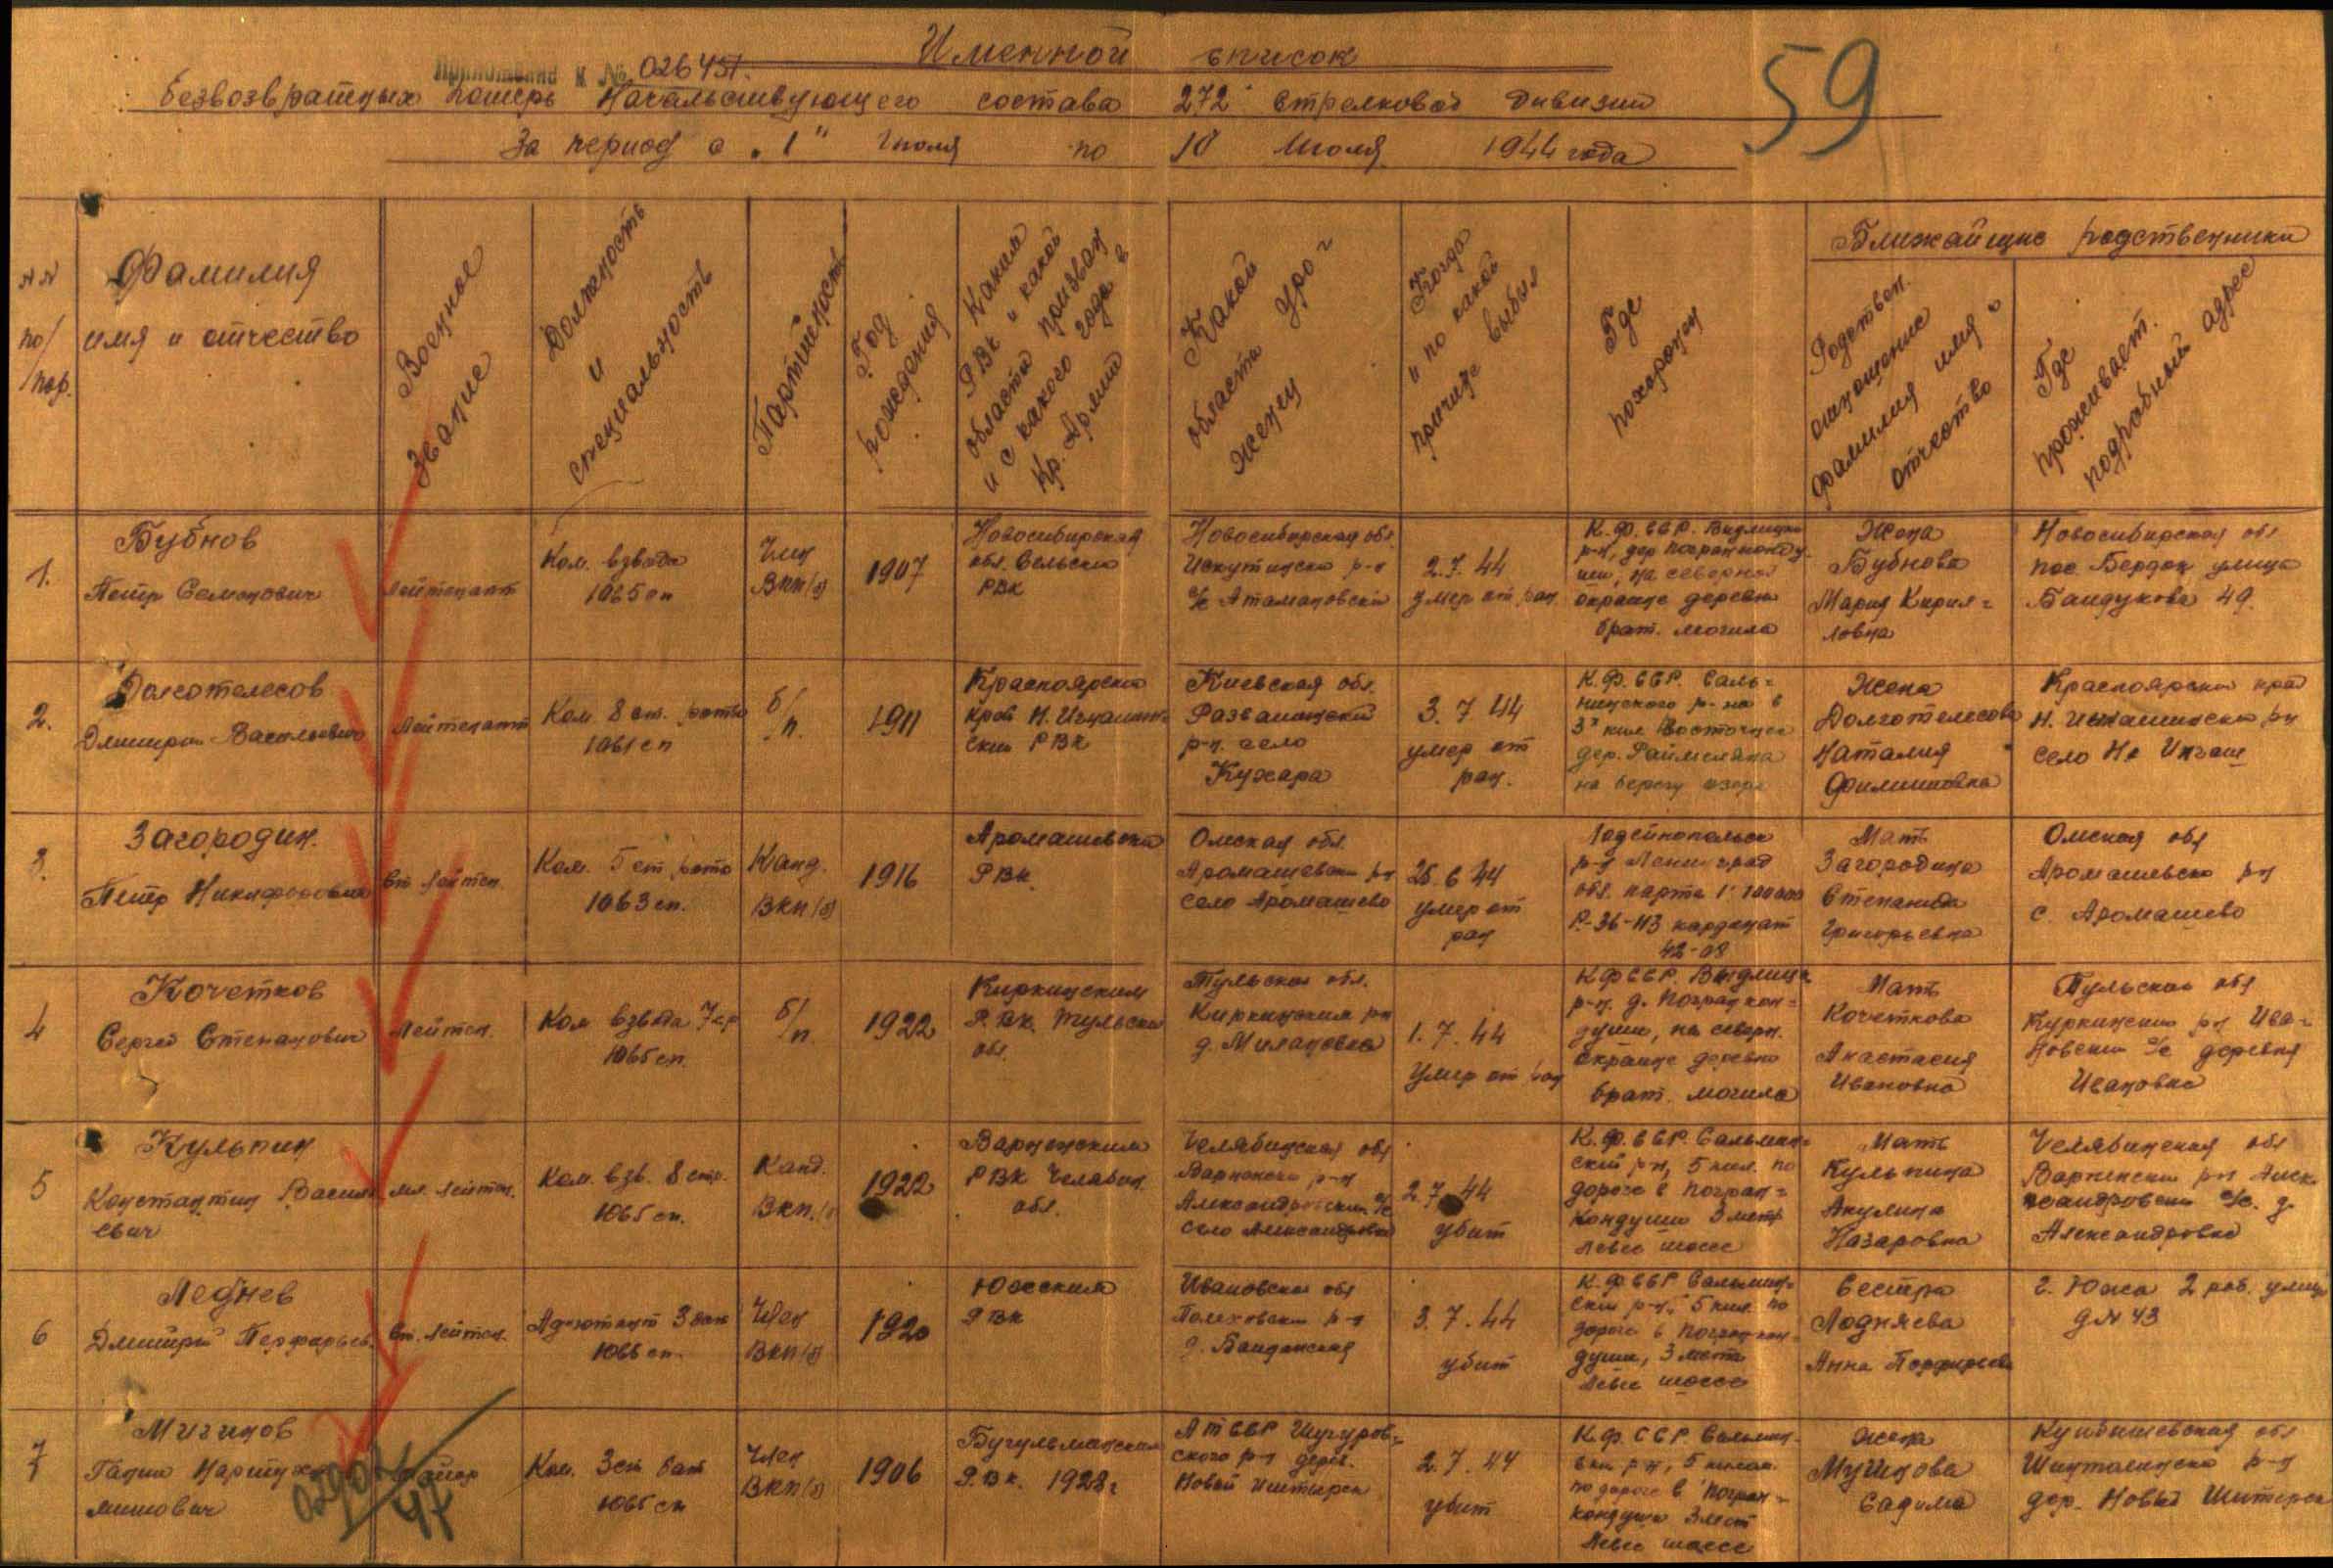 Именной список
Приложение к № 026451.
безвозвратных потерь Начальствующего состава 272 стрелковой дивизии
За период с „1" июля по 10 Июля 1944 года
59
№№ по/пор.
Фамилия
имя и отчество
Военное звание
Должность и специальность
Партийность
Год рождения
Каким РВК и какой области призван и с какого года в Кр. Армии
Какой области уро-женец
Когда и по какой причине выбыл
Где похоронен
Ближайшие родственники
Родствен. отношение фамилия имя и отчество
Где проживает. подробный адрес
1.
Бубнов
Петр Семенович
Лейтенант
Ком. взвода
1065 сп
Член
ВКП(б)
1907
Новосибирская
обл. Сельским
РВК
Новосибирская обл.
р-н
с/с Атамановский
2.7.44
умер от ран
К.Ф.ССР. Видлицкий
р-н, дер. Погранконду-
ши, на северной
окраине деревни
брат. могила
Жена
Бубнова
Мария Кирил-
ловна
Новосибирская обл
пос. Бердск улица
49.
2.
Долготелесов
Дмитрий Васильевич
Лейтенант
Ком. 8 ст. роты
1061 сп
б/п.
1911
Красноярский
край Н. Ингашский
РВК
Киевская обл.
р-н. село
Кухара
3.7.44
умер от
ран.
К.Ф.ССР. Саль-
ницкого р-на в
3х км Восточнее
дер.
на берегу озера
Жена
Долготелесова
Наталия
Филипповна
Красноярский край
Н. Ингашинский р-н
село Н. Ингаш
3.
Загородин.
Петр Никифорович
Ст. Лейтен.
Ком. 5 ст роты
1063 сп.
Канд.
ВКП(б)
1916
Аромашевский
РВК.
Омская обл.
Аромашевский р-н
село Аромашево
25.6.44
умер от
ран
Лодейнопольск
р-н Ленинград
обл. карта 1:100000
Р-36-113 кардинат
42-08
Мать
Загородина
Степанида
Григорьевна
Омская обл
Аромашевский р-н
с. Аромашево
4
Кочетков
Сергей Степанович
Лейтен.
Ком взвода 7 ср
1065 сп.
б/п.
1922
Киркинским
РВК. Тульской
обл.
Тульская обл.
Киркинский р-н
д. Милановка
1.7.44
Умер от ран
КФССР. Видлицк
р-н. д. Погранкон-
души, на северн.
окраине деревни
брат. могила
Мать
Кочеткова
Анастасия
Ивановна
Тульская обл
Куркинский р-н Ива-
новский с/с деревня
Ивановка
5
Кульпин
Константин Василь
евич
мл. лейтен.
Ком. взв. 8 стр.
1065 сп.
Канд.
ВКП.(б)
1922
Варненским
РВК Челябин.
обл.
Челябинская обл
Варненск. р-н
Александровский с/с
село Александровка
2.7.44
убит
К.Ф.ССР. Сальмин-
ский р-н, 5 килм. по
дороге в Погран-
кондуши 3 метр
левее шоссе
Мать
Кульпина
Акулина
Назаровна
Челябинская обл
Варненский р-н Алек-
сандровский с/с. д.
Александровка
6
Леднев
Дмитрий Перфирьев.
Ст. Лейтен.
Адъютант 3 бат
1065 сп.
Член
ВКП(б)
1920
Южским
РВК
Ивановская обл
р-н
д.
3.7.44
убит
К.Ф.ССР Сальмин-
ский р-н, 5 килм по
дороге в Погранкон-
души, 3 метр
левее шоссе
Сестра
Анна Порфирьевна
г. Южа 2 раб. улица
д № 43
7
Мигинов
Ганин
минович
майор
02904/44
Ком. 3 сп бат
1065 сп
Член
ВКП(б)
1906
Бугульманским
РВК. 1928 г
АТССР Шугуров-
ского р-н дерев.
Новый Иштиряк
2.7.44
убит
К.Ф.ССР. Сальмин-
ский р-н, 5 килом.
по дороге в Погран-
кондуши 3 мет
левее шоссе
Жена
Садима
Куйбышевская обл
р-н
дер. Новый